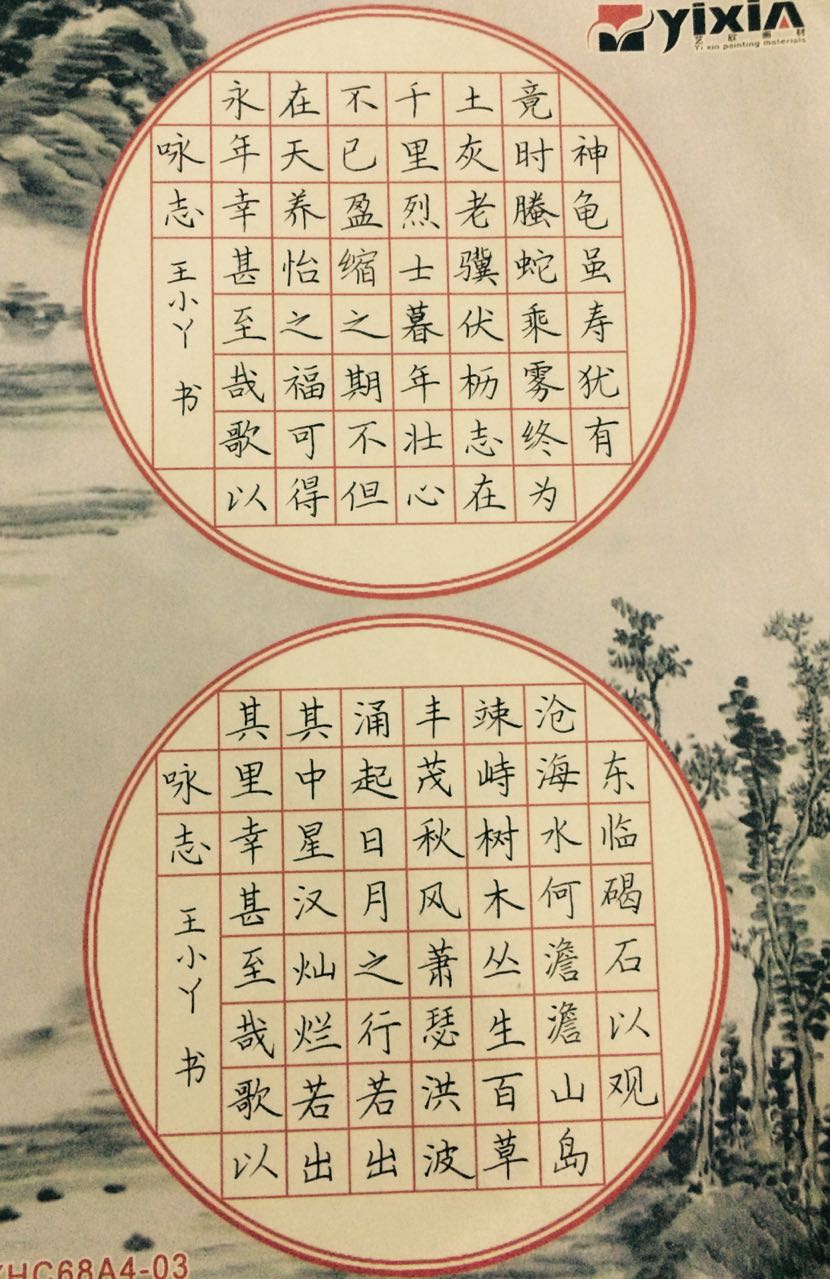 yixin
艺欣画材
Yi xin painting materials
神龟虽寿犹有
竟时螣蛇乘雾终为
土灰老骥伏枥志在
千里烈士暮年壮心
不已盈缩之期不但
在天养怡之福可得
永年幸甚至哉歌以
咏志
王小丫 书
东临碣石以观
沧海水何澹澹山岛
竦峙树木丛生百草
丰茂秋风萧瑟洪波
涌起日月之行若出
其中星汉灿烂若出
其里幸甚至哉歌以
咏志
王小丫 书
YHC68A4-03